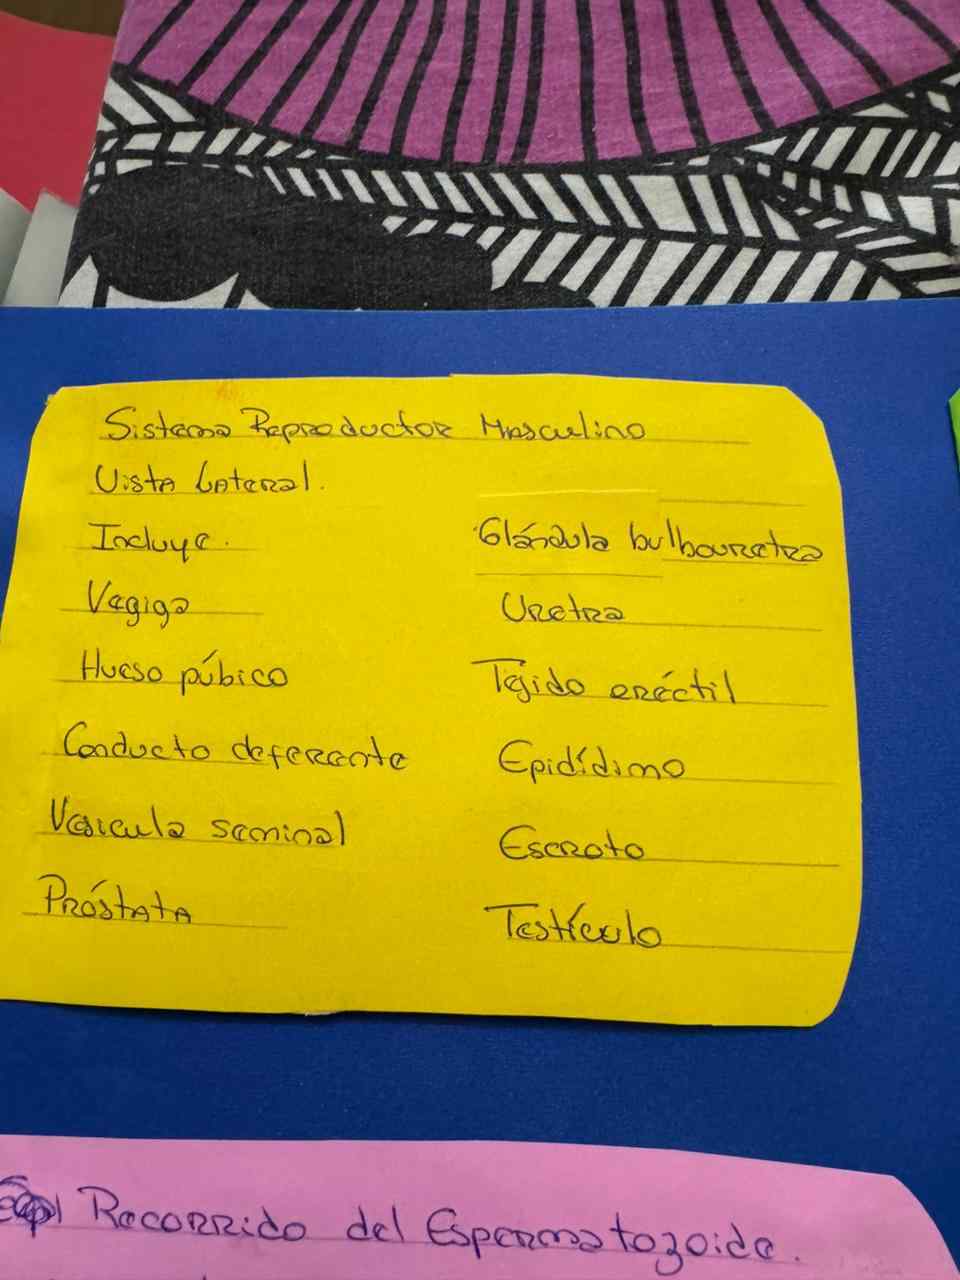 Sistema Reproductor Masculino
Vista Lateral.
Incluye.
Vegiga
Hueso púbico
Conducto deferente
Vesicula seminal
Próstata
Glándula bulbouretra
Uretra
Tejido eréctil
Epidídimo
Escroto
Testículo
Recorrido del Espermatozoide.